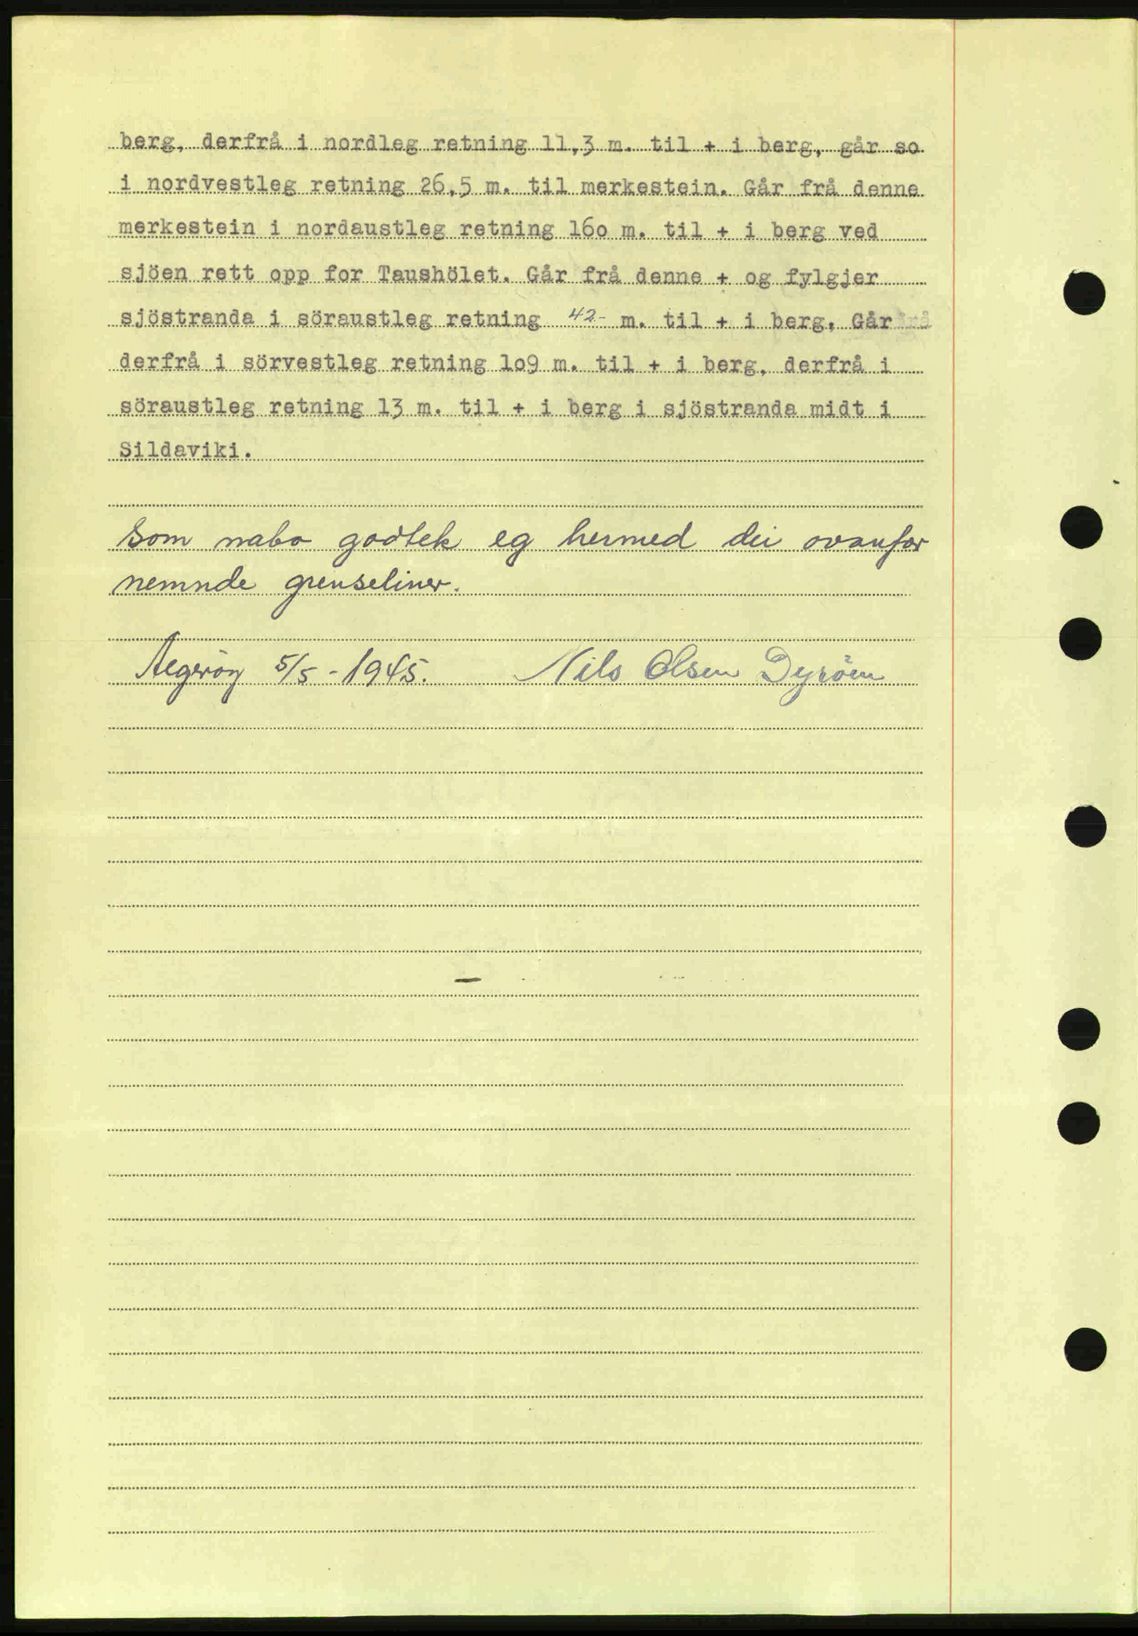 berg, derfrå i nordleg retning 11,3 m. til + i berg, går so
i nordvestleg retning 26,5 m. til merkestein. Går frå denne
merkestein i nordaustleg retning 16o m. til + i berg ved
sjöen rett opp for Taushölet. Går frå denne + og fylgjer
sjöstranda i söraustleg retning 42- m. til + i berg, Går
derfrå i sörvestleg retning 1o9 m. til + i berg, derfrå i
söraustleg retning 13 m. til + i berg i sjöstranda midt i
Sildaviki.
Som nabo godtek eg hermed dei ovanfor
nemnde grenseliner.
5/5 - 1945. Nils Olsen Dyröen